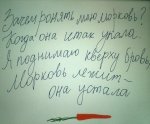 Зачем ронять мою морковь?
Когда она и так упала.
Я поднимаю кверху бровь,
Морковь лежит -
она устала